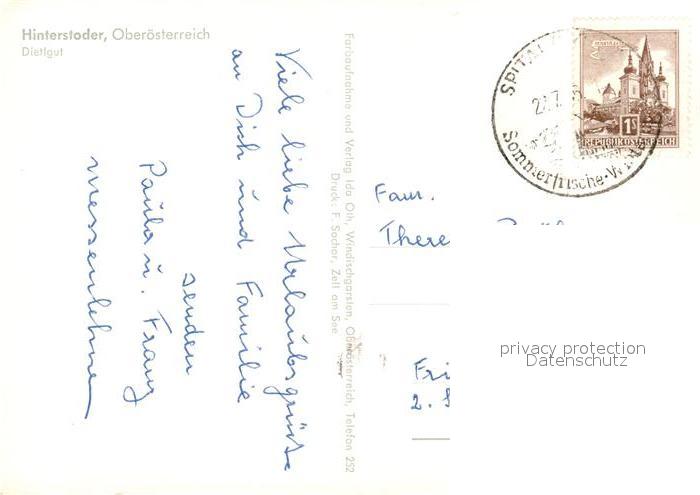 Hinterstoder, Oberösterreich
Dietlgut
Viele liebe Urlaubsgrüße
an Dich und Familie
senden
Paula u. Franz
Farbaufnahme und Verlag Ida Oth, Windischgarsten, Oberösterreich, Telefon 252
Druck: F. Sochor, Zell am See
SPITAL
Sommerfrische-Wi
1S
REPUBLIK ÖSTERREICH
Fam.
There
Fri
2. S
privacy protection
Datenschutz